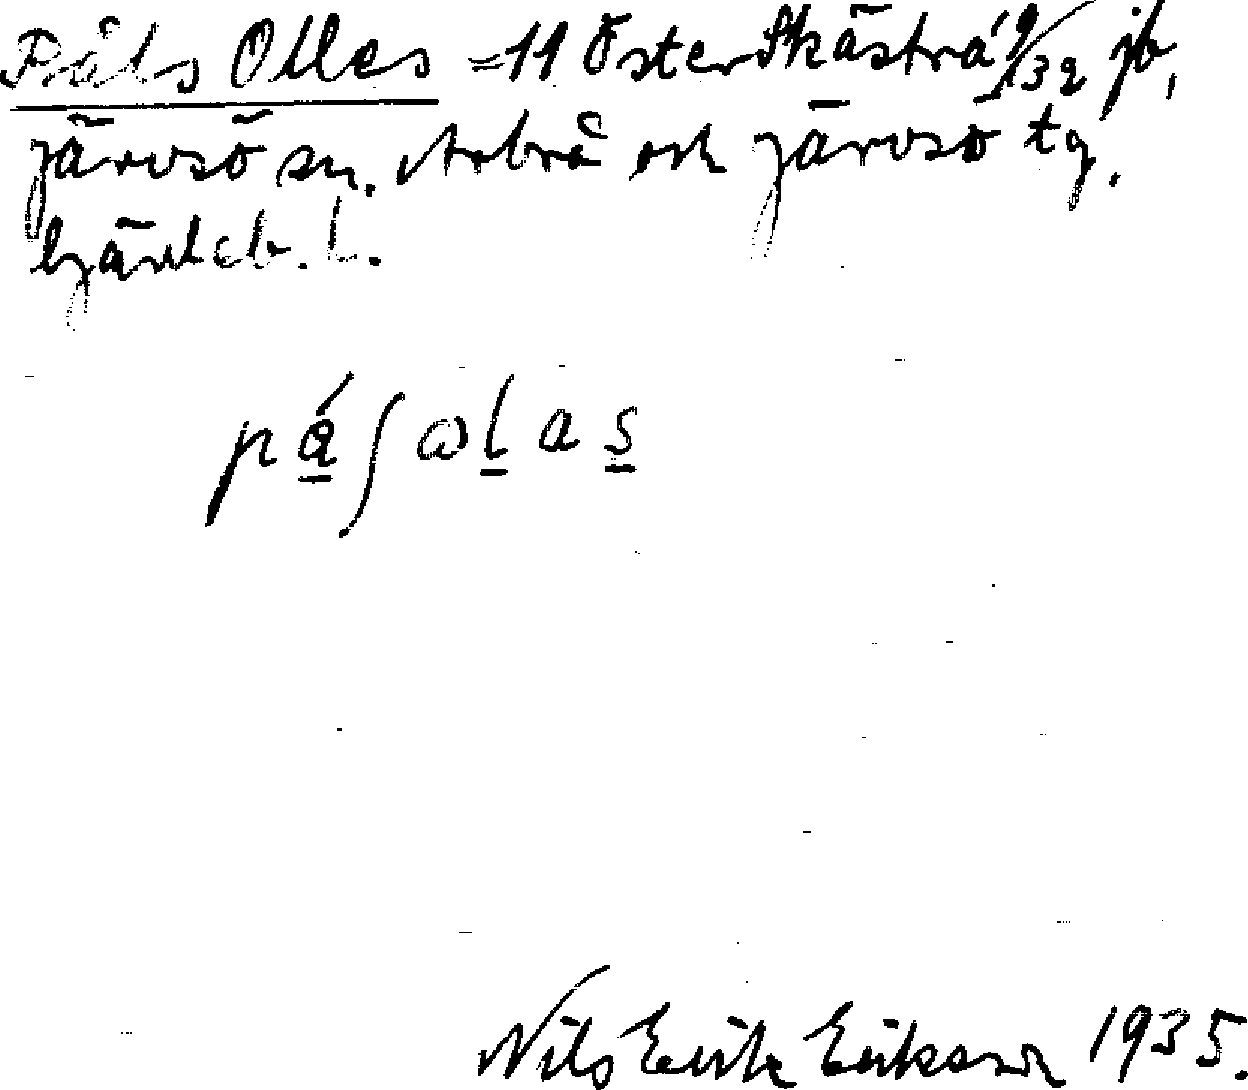 Påls Olles = 11 Österskästra 19/32 jb,
Järvsö sn. Arbrå och Järvsö tg.
Gävleb. l.
pá̱ʃωḻas̱
Nils Erik Eriksson 1935.